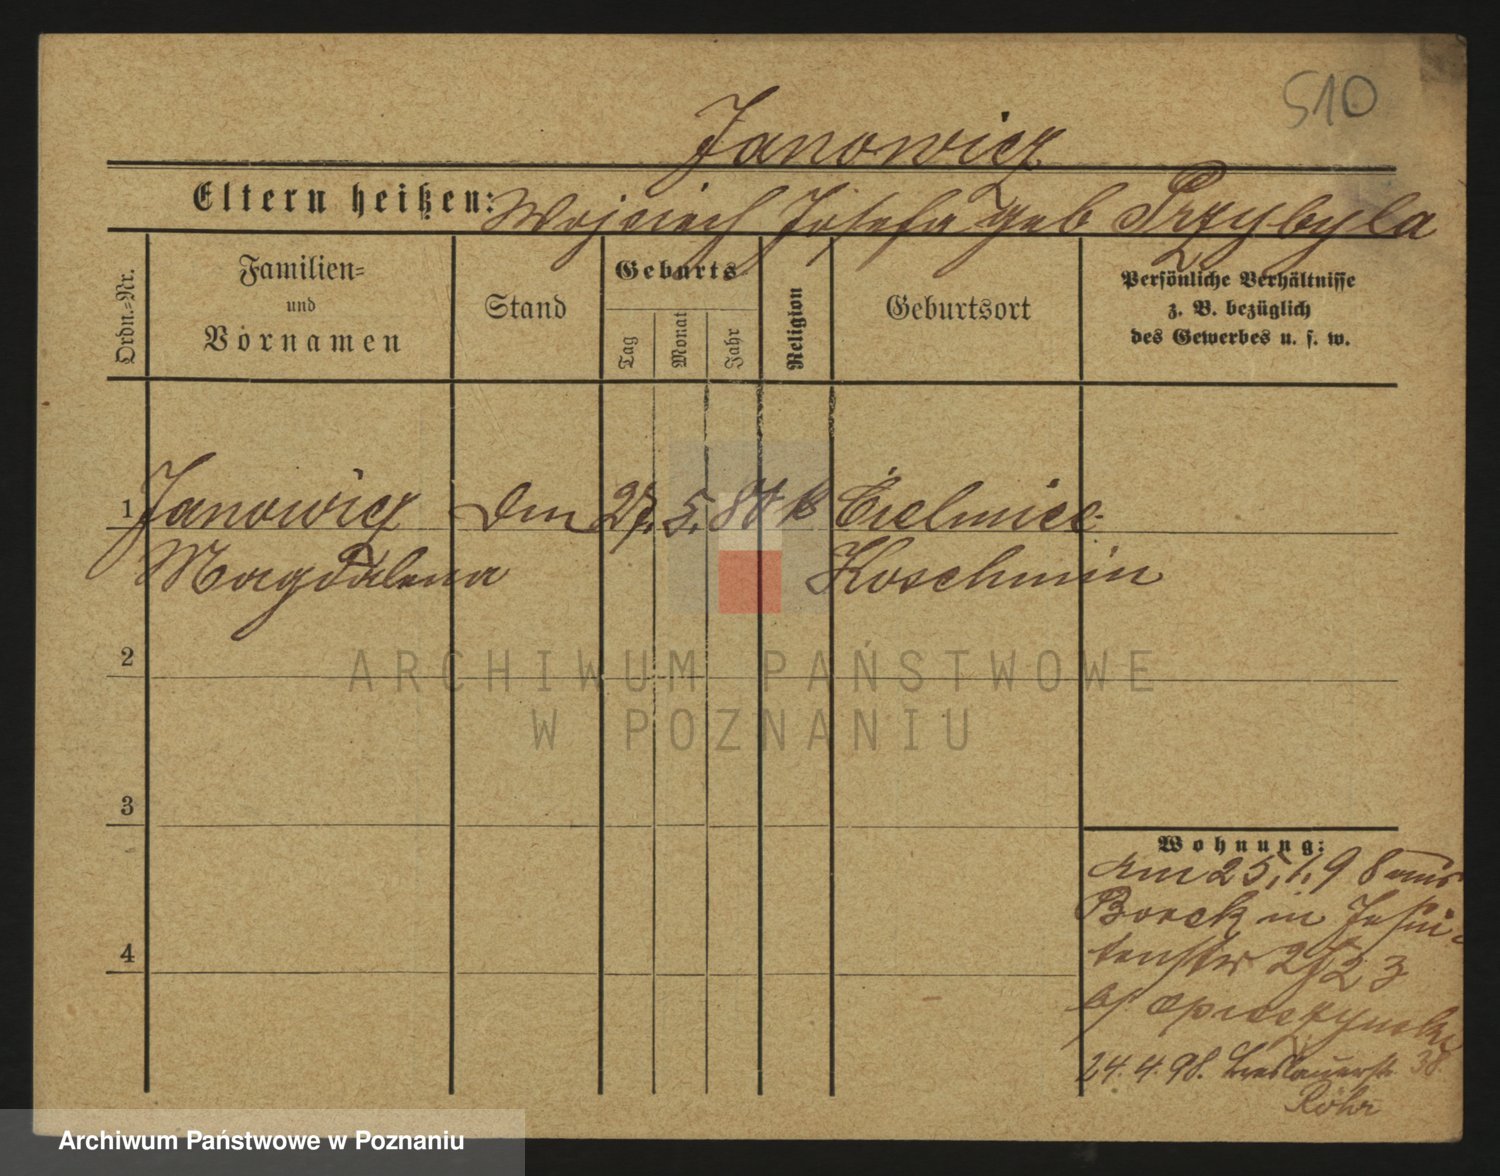 510
Janowicz
Eltern heißen: Wojciech Josefa geb Przybyla
Ordn.-Nr.
Familien-
und
Vornamen
Stand
Geburts
Tag
Monat
Jahr
Religion
Geburtsort
Persönliche Verhältnisse
z. B. bezüglich
des Gewerbes u. s. w.
1 Janowicz 27. 5. 80 k
Magdalena Koschmin
2
3
4
Wohnung:
am 25. 1. 98 aus
Borek in Jesui-
tenstr
24. 4. 98. Breslauerstr 38
Röhr
ARCHIWUM PAŃSTWOWE
W POZNANIU
Archiwum Państwowe w Poznaniu